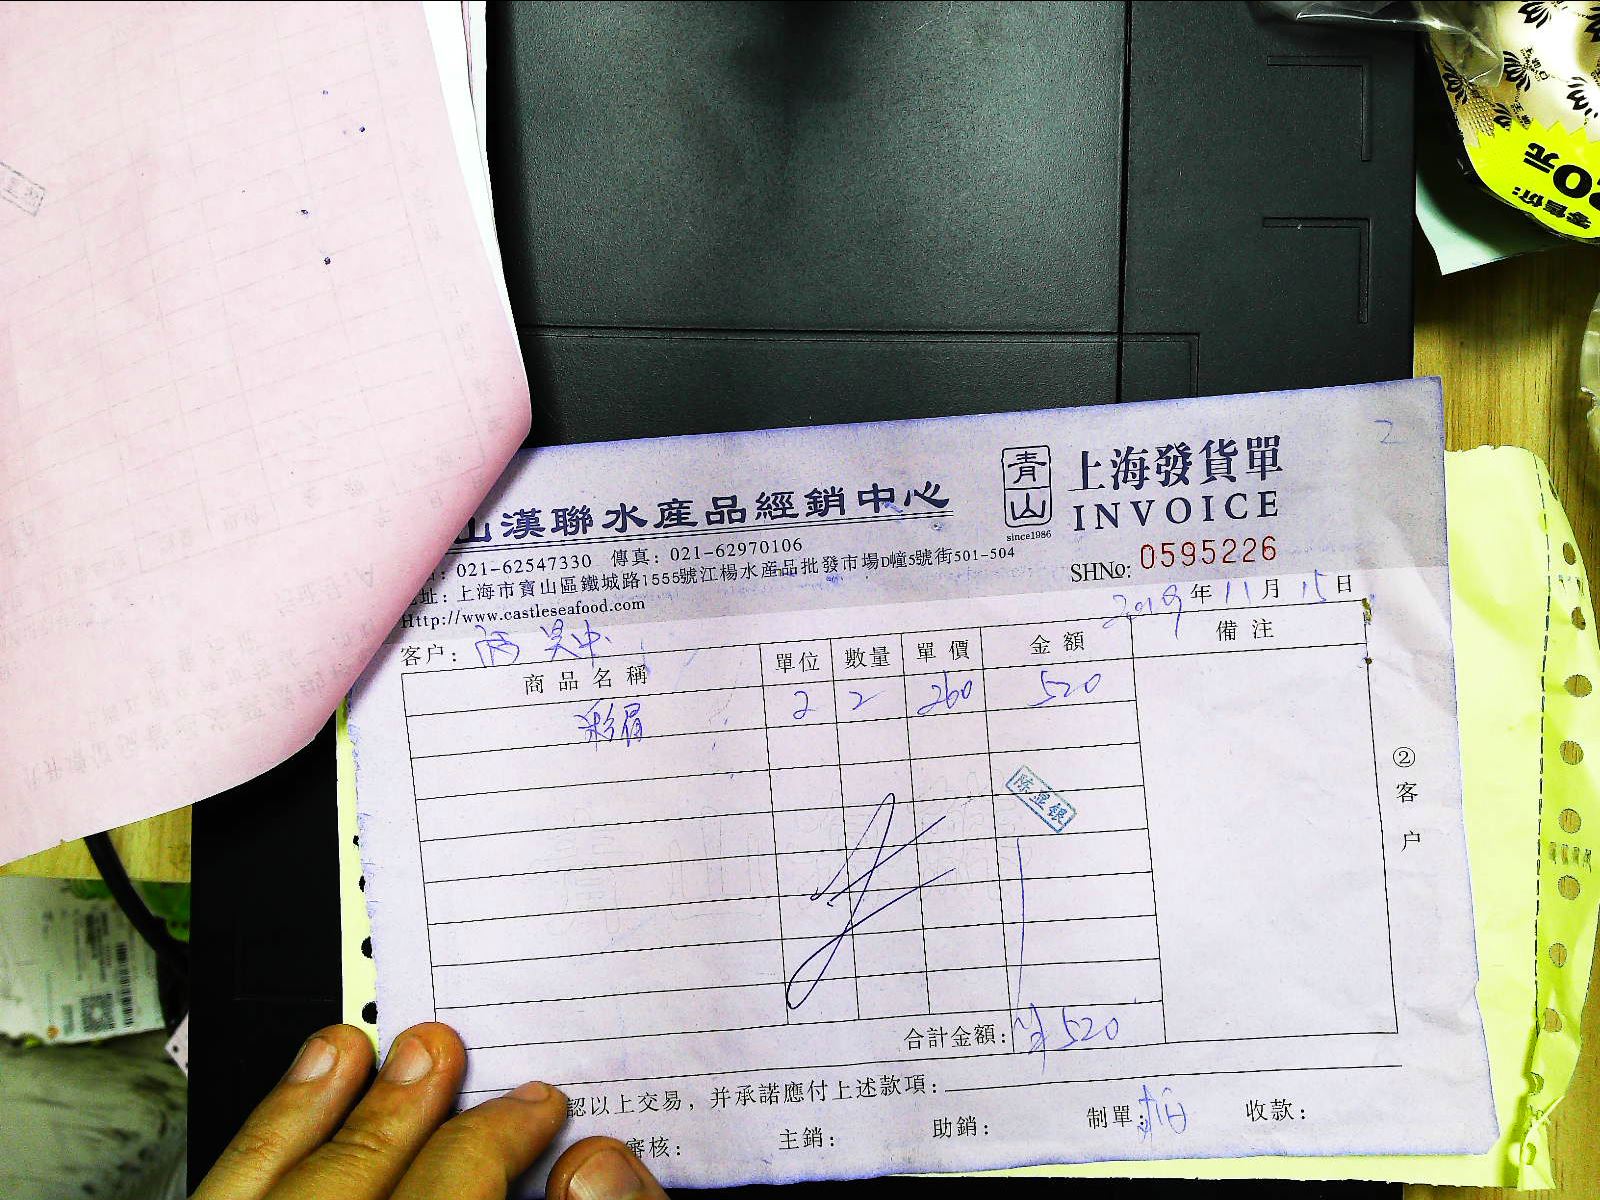 零售价:
0元
青山
since1986
上海發貨單
INVOICE
山漢聯水產品經銷中心
: 021-62547330 傳真: 021-62970106
址: 上海市寶山區鐵城路1555號江楊水產品批發市場D幢5號街501-504
Http://www.castleseafood.com
SHNo: 0595226
2019年11月15日
客户:
商品名稱 單位 數量 單價 金額 備注
2 2 260 520
陈显银
②客户
合計金額: ¥520
認以上交易，并承諾應付上述款項:
審核: 主銷: 助銷: 制單: 收款: